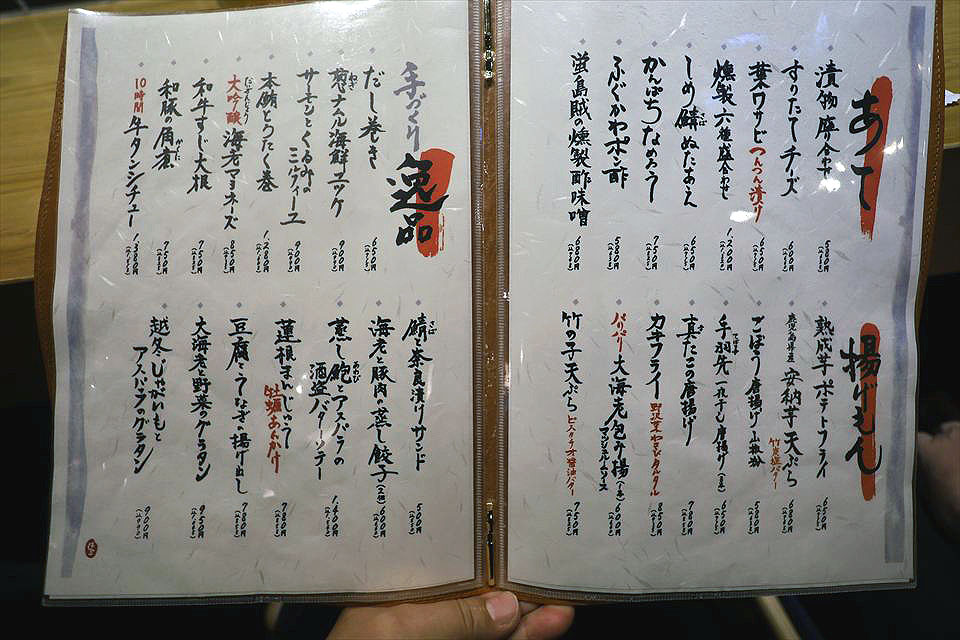 あて
漬物盛合せ 580円
すりたてチーズ 600円
葉ワサビつんつん漬け 650円
燻製六種盛合わせ 1,200円
しめ鯖ぬたあえ 650円
かんぱちなめろう 750円
ふぐかわポン酢 580円
蛍島賊の燻製酢味噌 680円
揚げもん
熟成芋ポテトフライ 650円
鹿児島県産 安納芋天ぷら 680円
ごぼう唐揚げ 580円
手羽先一夜干し唐揚げ
真だこの唐揚げ 780円
カキフライ 850円
パリパリ大海老包み揚げ 600円
竹の子天ぷら ピスタチオ醤油バター 750円
手づくり逸品
だし巻き 650円
葱ナムル海鮮ユッケ 900円
サーモンとくるみのミルフィーユ 900円
本鮪とろたく巻 1,280円
大吟醸海老マヨネーズ 850円
和牛すじ大根 750円
和豚角煮 750円
10時間牛タンシチュー 1,380円
鯖と奈良漬けサンド 500円
海老と豚肉の蒸し餃子 600円
蒸し鮑とアスパラの酒盗バターソテー 1,400円
蓮根まんじゅう牡蠣あんかけ 780円
豆腐とうなぎの揚げ出し 780円
大海老と野菜のグラタン 950円
越冬じゃがいもとアスパラのグラタン 900円